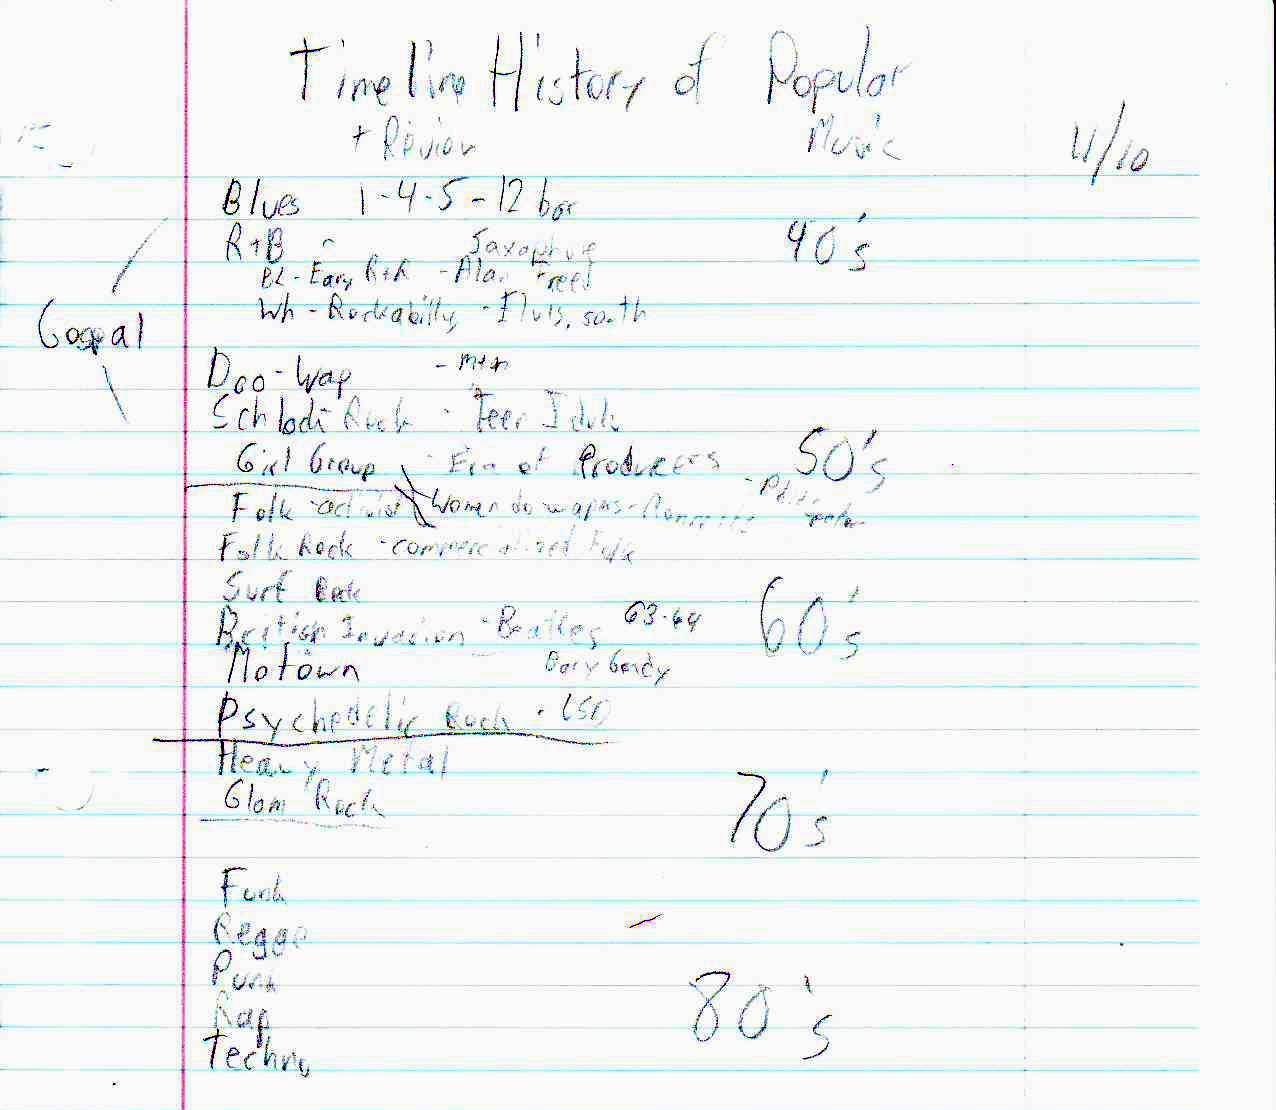 Timeline History of Popular
+ Review Music 4/10
Blues 1-4-5-12 bar
R+B Saxophone 40's
BL - Eary R+R - Alan Freed
Wh - Rockabilly - Elvis, south
Gospal
Doo-Wap
Schlock Rock - Teen Idols
Girl Group - Era of Producers 50's
Folk Women do waps
Folk Rock - commercialized Folk
Surf Rock
British Invasion - Beatles 63-64 60's
Motown Bary Gordy
Psychedelic Rock - LSD
Heavy Metal
Glam Rock 70's
Funk
Regge
Punk
Rap 80's
Techno